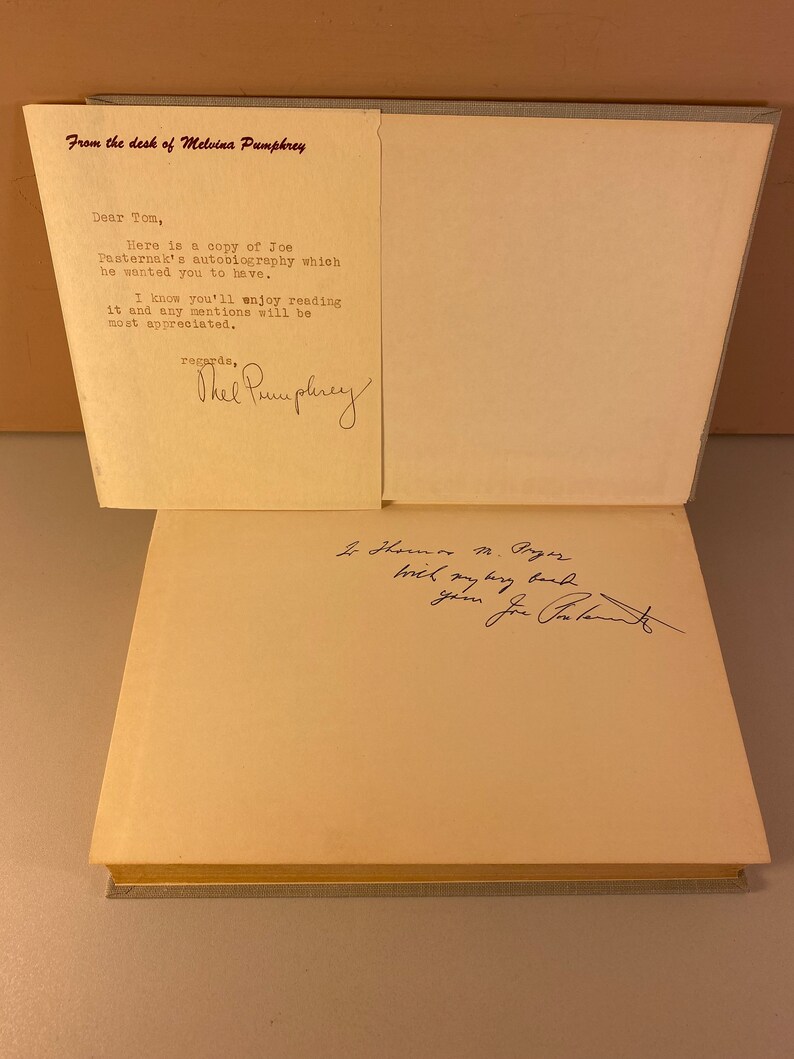 From the desk of Melvina Pumphrey
Dear Tom,
Here is a copy of Joe
Pasternak's autobiography which
he wanted you to have.
I know you'll enjoy reading
it and any mentions will be
most appreciated.
regards,
Mel Pumphrey
To Thomas M. Pryor
With my very best
yours Joe Pasternak